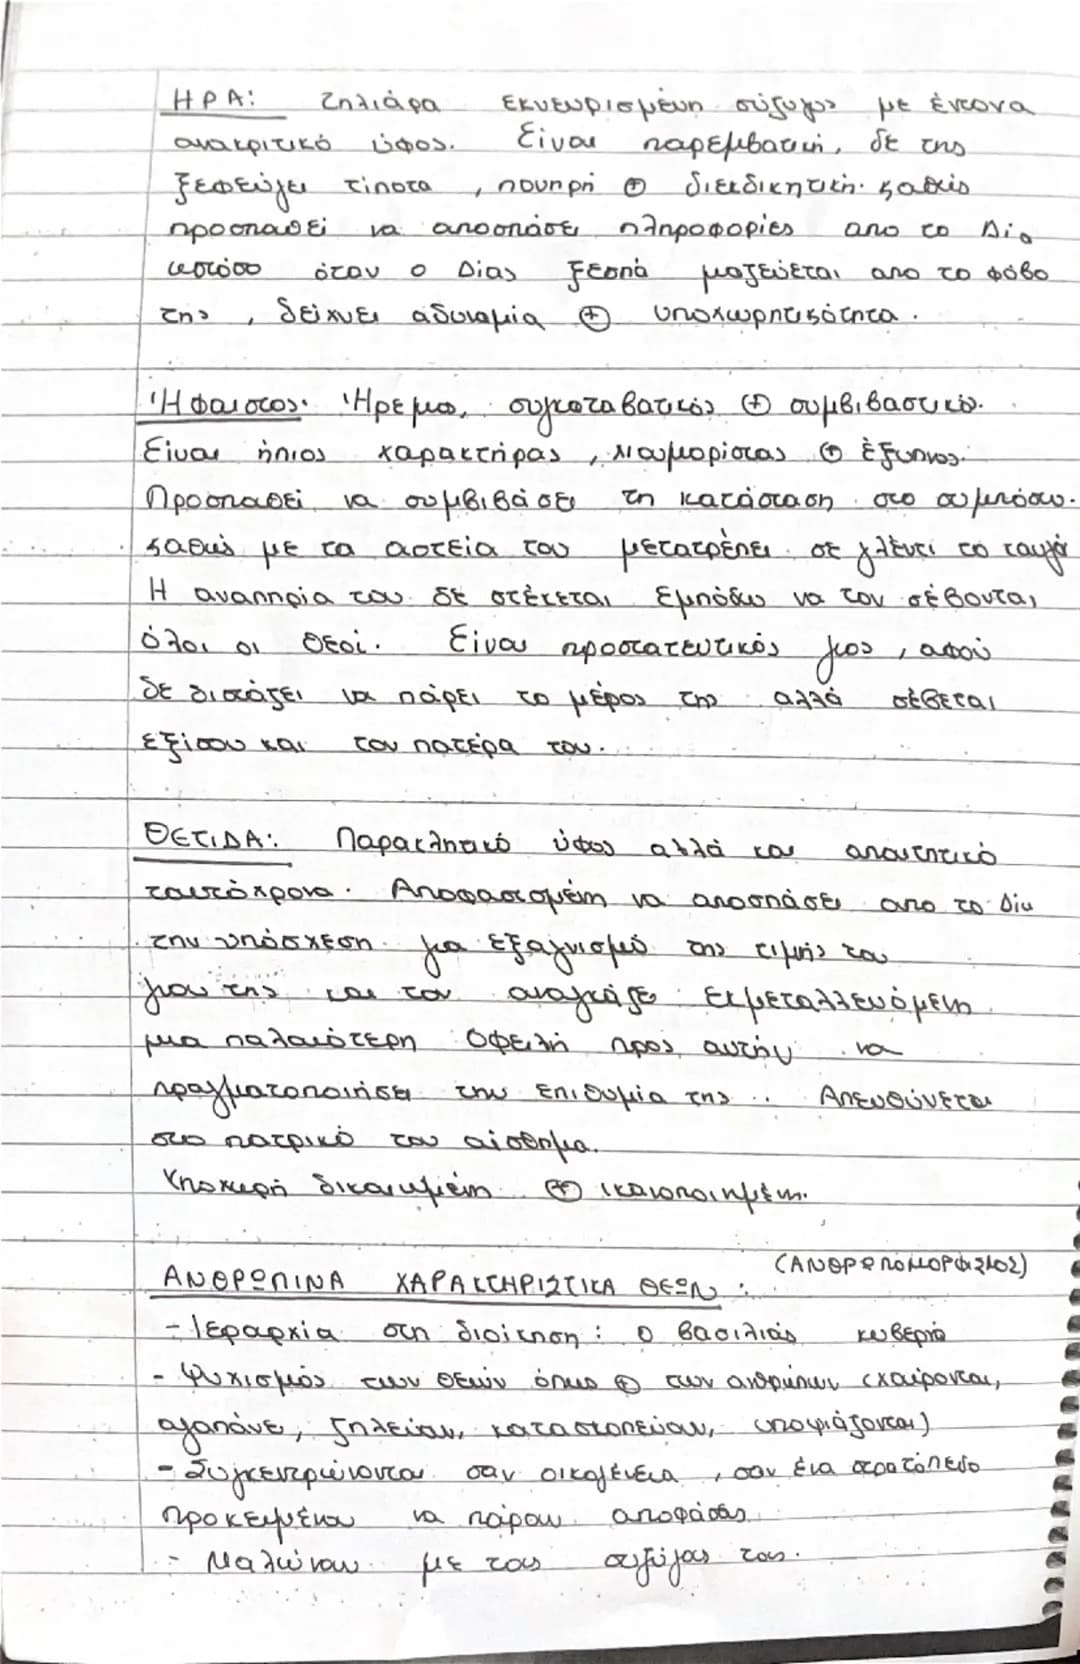 ΗΡΑ: Ζηλιάρα εκνευρισμένη σύζυγος με έντονα
ανακριτικό ύφος. Είναι παρεμβατική, δε της
ξεφεύγει τίποτα, πονηρή ⊕ διεκδικητική. καθώς
προσπαθεί να αποσπάσει πληροφορίες απο το Δία
ωστόσο όταν ο Δίας ξεσπά μαζεύεται απο το φόβο
της, δείχνει αδυναμία ⊕ υποχωρητικότητα.
Ήφαιστος: Ήρεμος, συγκαταβατικός ⊕ συμβιβαστικός.
Είναι ήπιος χαρακτήρας, χιουμορίστας ⊕ έξυπνος.
Προσπαθεί να συμβιβάσει τη κατάσταση στο συμπόσιο.
καθώς με τα αστεία του μετατρέπει σε γλέντι το καυγά
Η αναπηρία του δε στέκεται εμπόδιο να τον σέβονται
όλοι οι θεοί. Είναι προστατευτικός γιος, αφού
δε διστάζει να πάρει το μέρος της αλλά σέβεται
εξίσου και τον πατέρα του.
ΘΕΤΙΔΑ: Παρακλητικό ύφος αλλά και απαιτητικό
ταυτόχρονα. Αποφασισμένη να αποσπάσει απο το Δία
την υπόσχεση για εξαγνισμό της τιμής του
γιου της και τον αναγκάζει εκμεταλλευόμενη
μια παλαιότερη οφειλή προς αυτήν να
πραγματοποιήσει την επιθυμία της.. Απευθύνεται
στο πατρικό του αίσθημα.
Υποχωρή δικαιωμένη ⊕ ικανοποιημένη.
ΑΝΘΡΩΠΙΝΑ ΧΑΡΑΚΤΗΡΙΣΤΙΚΑ ΘΕΩΝ: (ΑΝΘΡΩΠΟΜΟΡΦΙΣΜΟΣ)
- Ιεραρχία στη διοίκηση: ο βασιλιάς κυβερνά
- Ψυχισμός των θεών όπως ⊕ των ανθρώπων (χαίρονται,
αγαπάνε, ζηλεύουν, κατασκοπεύουν, υποψιάζονται)
- Συγκεντρώνονται σαν οικογένεια, σαν ένα στρατόπεδο
προκειμένου να πάρουν αποφάσεις
- Μαλώνουν με τους συζύγους τους.